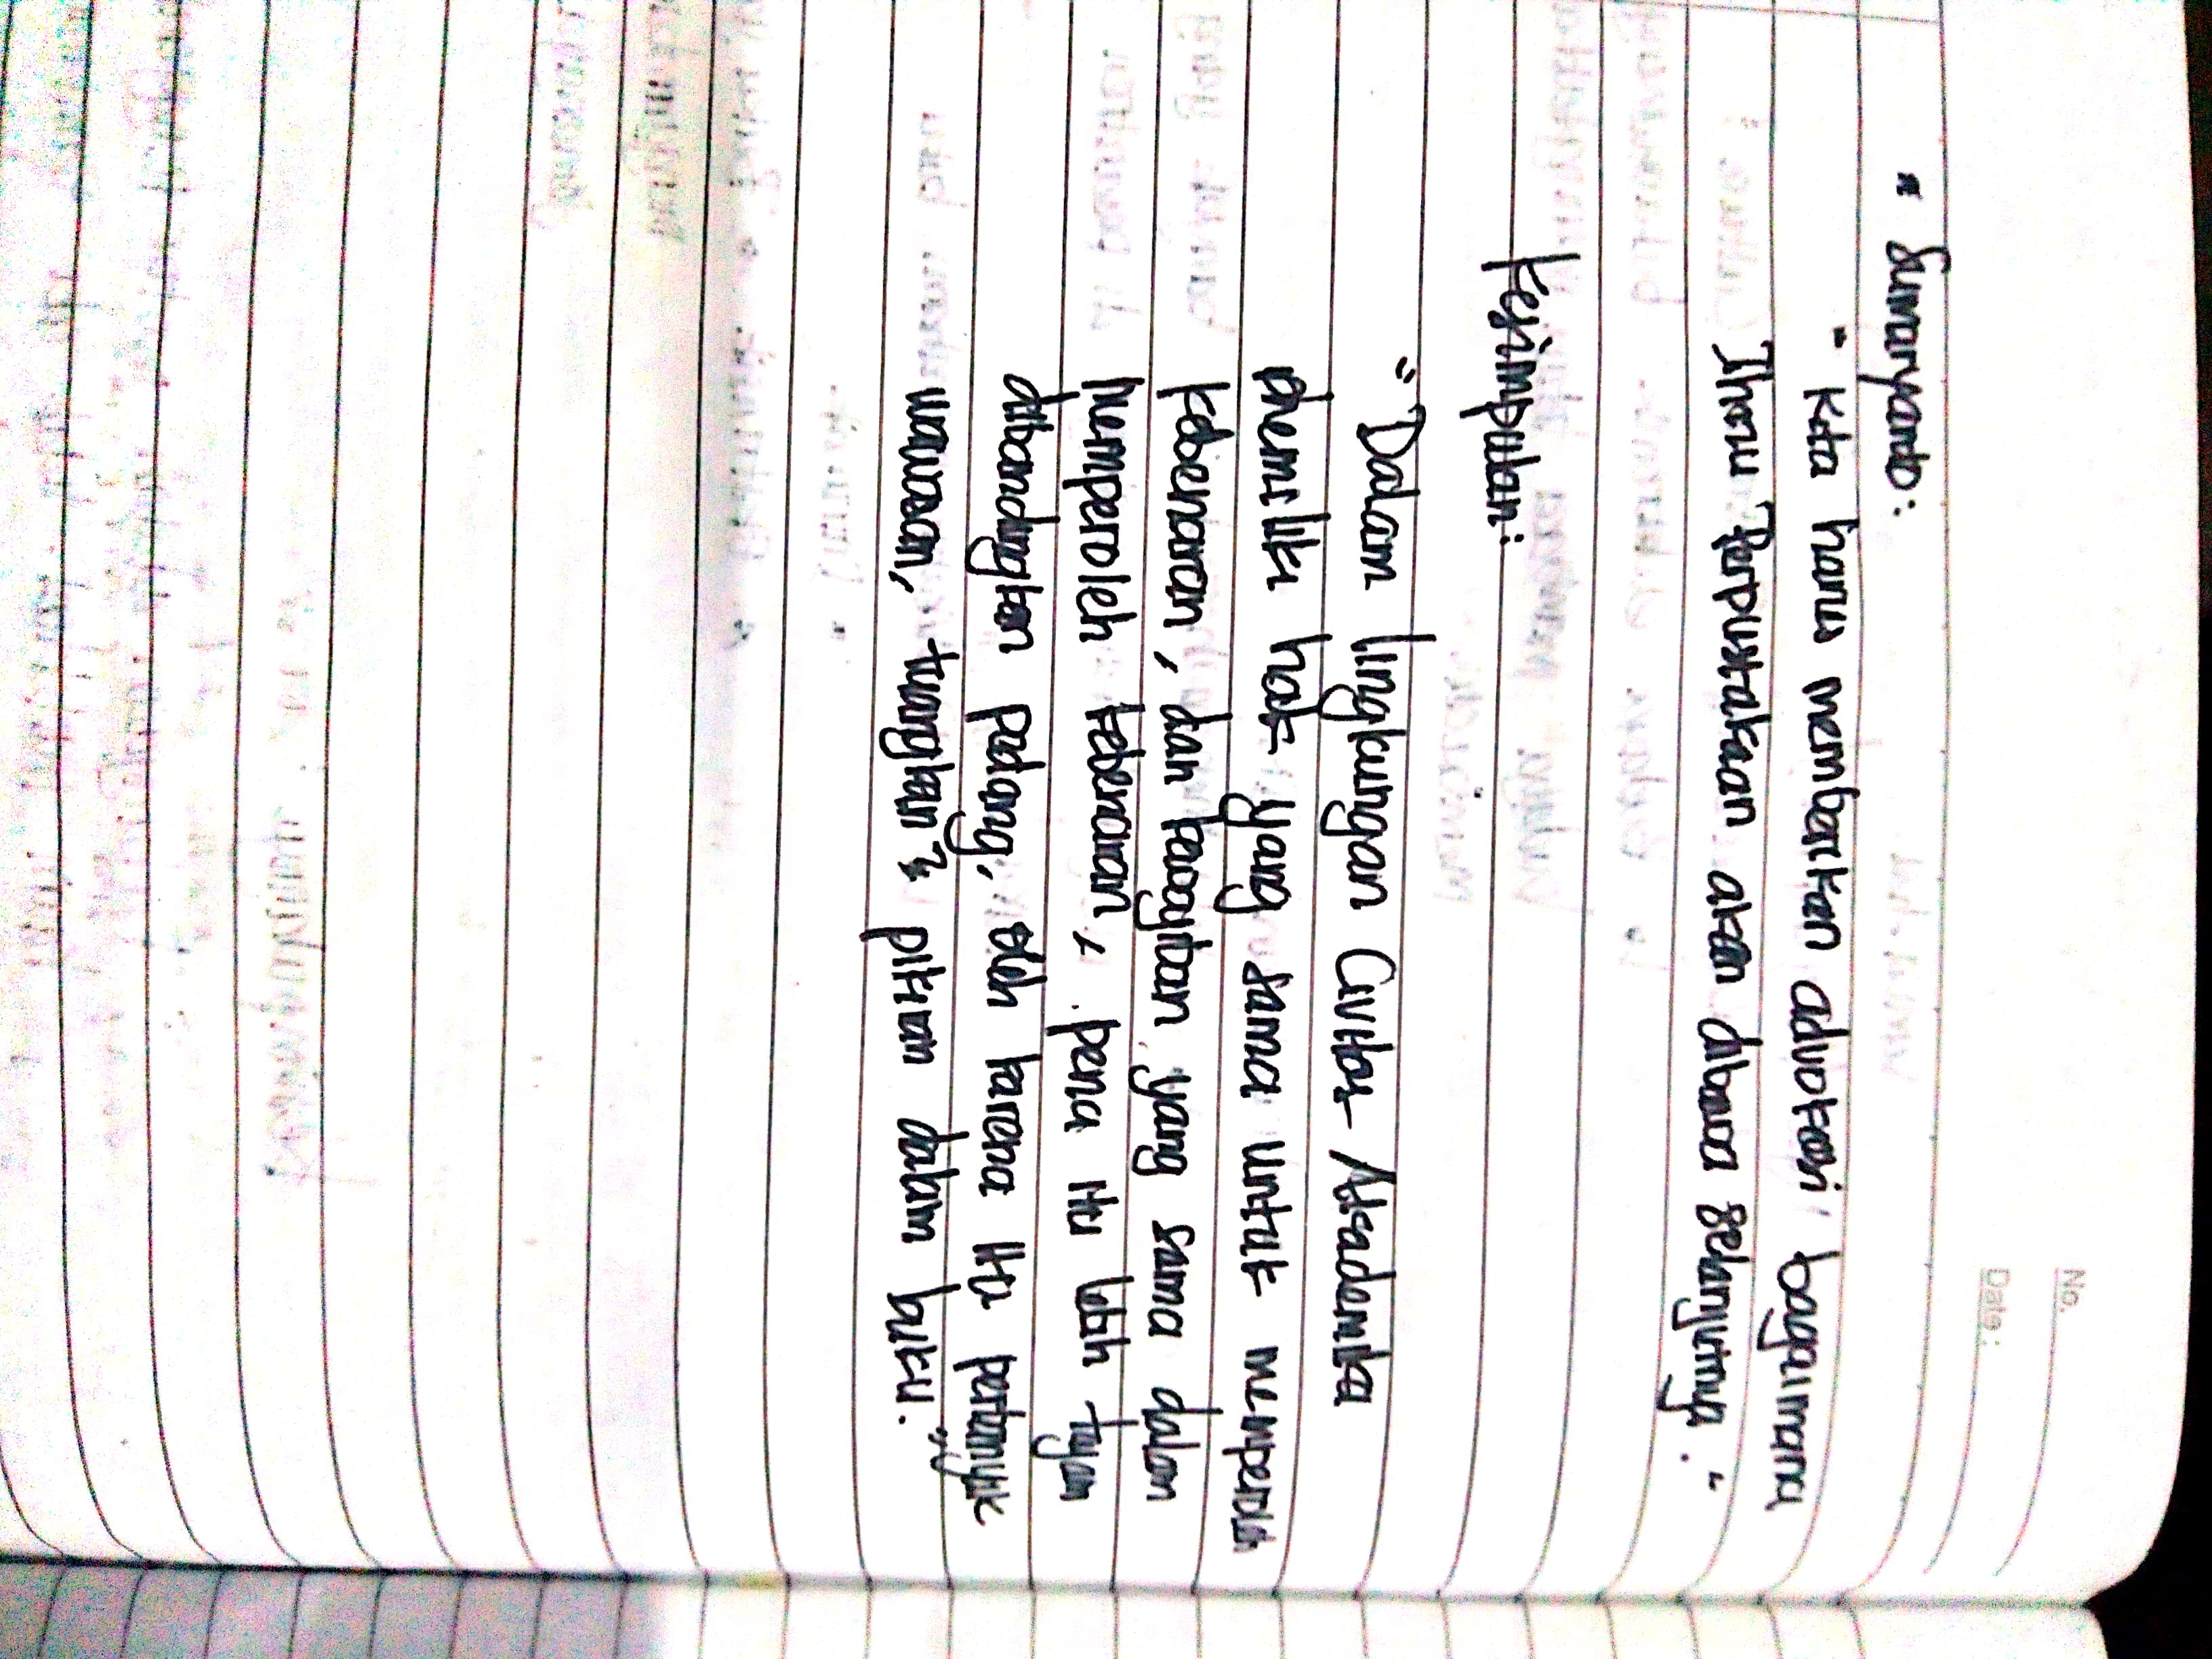 No.
Date:
" Sumaryanto:
" Kita harus memberikan advokasi, bagaimana
Ilmu Perpustakaan akan dibawa selanjutnya."
Kesimpulan:
" Dalam lingkungan Civitas Akademika
memiliki hak yang sama untuk memperoleh
kebenaran, dan kewajiban yang sama dalam
memperoleh kebenaran, pena itu lebih tajam
dibandingkan pedang, oleh karena itu pertajamlah
wawasan, tuangkan2 pikiran dalam buku."